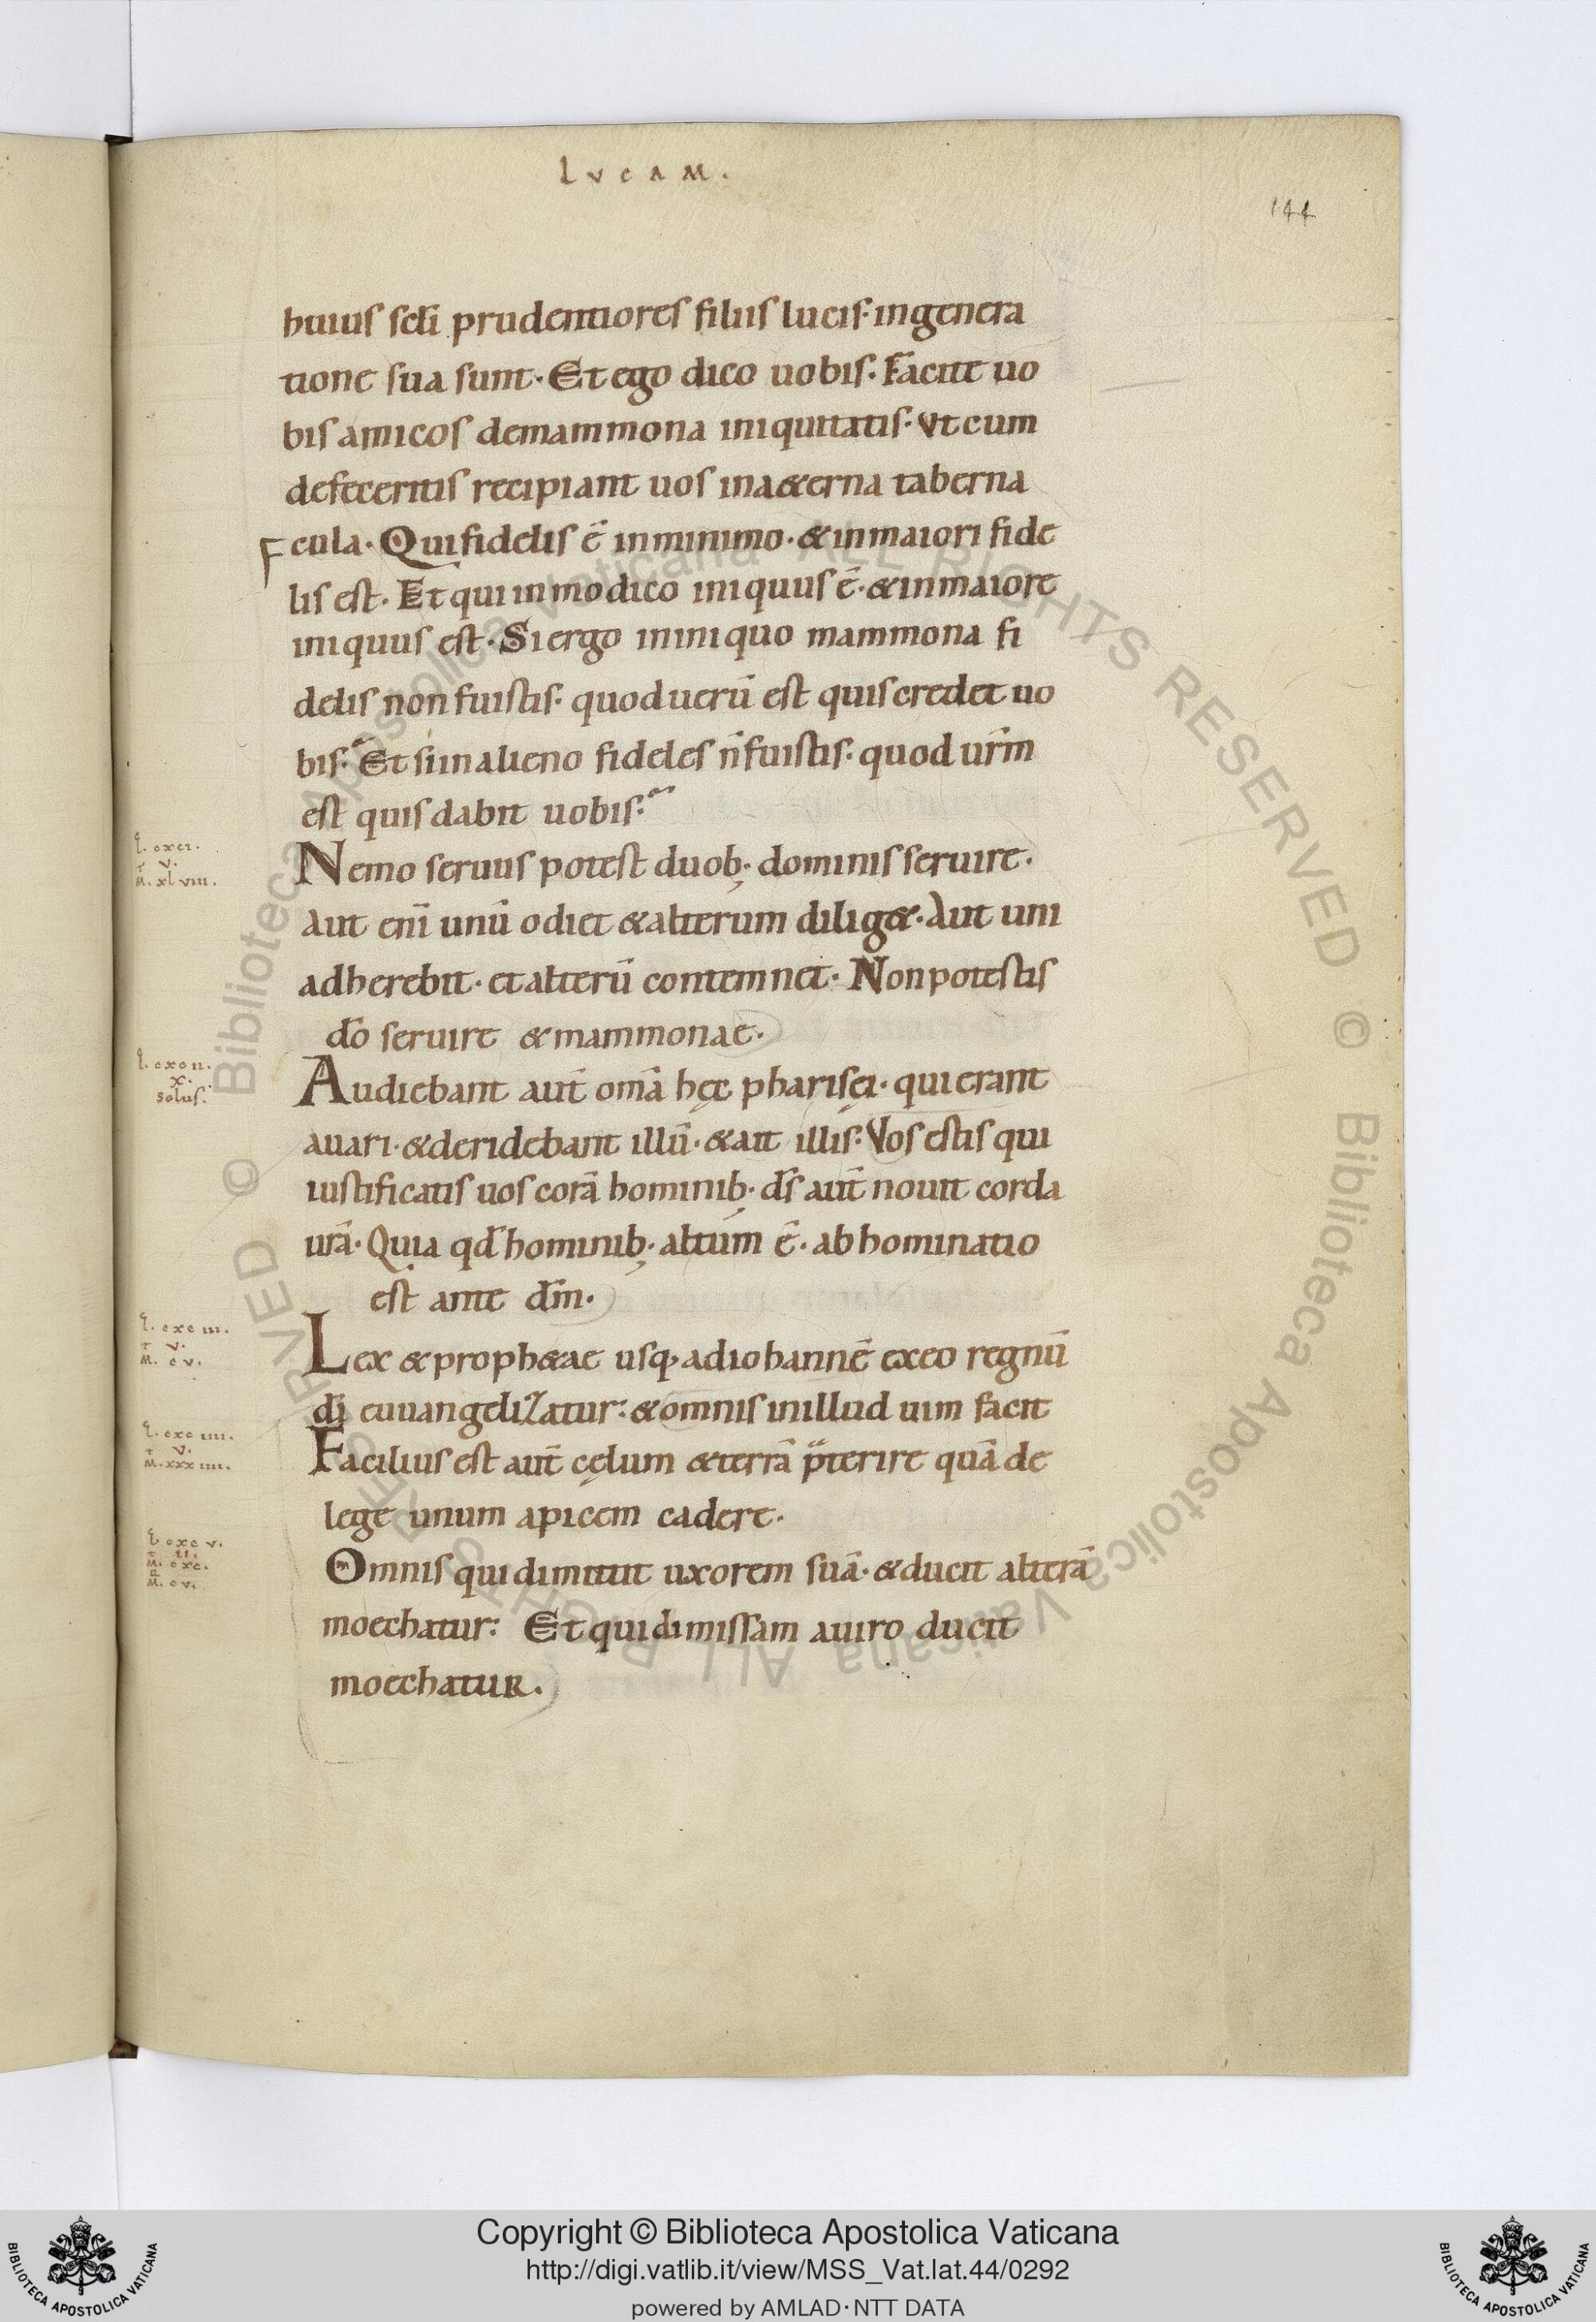 LVCAM.
144
huius scłi prudentiores filiis lucis· in genera
tione sua sunt· Et ego dico uobis· Facite uo
bis amicos demammona iniquitatis· Vt cum
defeceritis recipiant uos inaeterna taberna
cula· Qui fidelis ē inminimo· & inmaiori fide
lis est· Et qui inmodico iniquus ē· & inmaiore
iniquus est· Si ergo ininiquo mammona fi
delis non fuistis· quod uerū est quis credet uo
bis· Et si inalieno fideles n̄ fuistis· quod ur̄m
est quis dabit uobis·
E. cxci.
T V.
M. xlviii.
Nemo seruus potest duob; dominis seruire·
aut eni̅ unū odiet & alterum diliget· Aut uni
adherebit· et alterū contemnet· Non potestis
do̅ seruire & mammonae·
E. cxcii.
X.
solus.
Audiebant aut̅ om̅a hęc pharisęi· qui erant
auari· & deridebant illū· & ait illis· Vos estis qui
iustificatis uos corā hominib; ds̅ aut̅ nouit corda
ur̅a· Quia qd̅ hominib; altum ē· abhominatio
est ante dm̅·
E. cxciii.
T V.
M. cv.
Lex & prophetae usq; adiohannē exeo regnū
di̅ euuangelizatur· & omnis inillud uim facit
E. cxciiii.
T V.
M. xxxiiii.
Facilius est aut̅ cęlum & terrā p̅terire quā de
lege unum apicem cadere·
E. cxcv.
T II.
M. cxc.
R
M. cv.
Omnis qui dimittit uxorem suā· & ducit alterā
moechatur· Et qui dimissam auiro ducit
moechatur·
© Biblioteca Apostolica Vaticana ALL RIGHTS RESERVED © Biblioteca Apostolica Vaticana ALL RIGHTS RESERVED
Copyright © Biblioteca Apostolica Vaticana
http://digi.vatlib.it/view/MSS_Vat.lat.44/0292
powered by AMLAD·NTT DATA
BIBLIOTECA APOSTOLICA VATICANA
BIBLIOTECA APOSTOLICA VATICANA